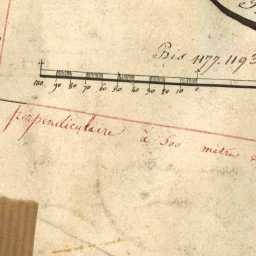 Bis 1177. 1193
100 90 80 70 60 50 40 30 20 10 0
perpendiculaire à 500 mètres